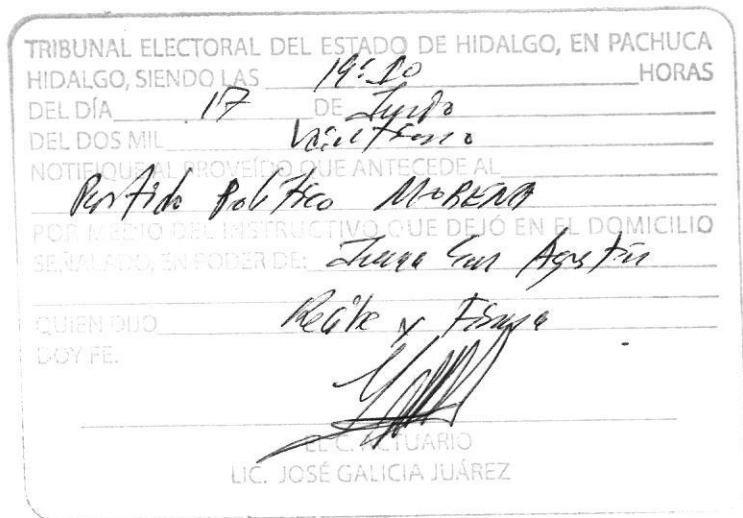 TRIBUNAL ELECTORAL DEL ESTADO DE HIDALGO, EN PACHUCA
HIDALGO, SIENDO LAS 19:10 HORAS
DEL DÍA 17 DE Junio
DEL DOS MIL
NOTIFIQUE AL PROVEÍDO QUE ANTECEDE AL
Partido Politico MORENA
POR MEDIO DEL INSTRUCTIVO QUE DEJÓ EN EL DOMICILIO
SEÑALADO, EN PODER DE: Agustín
QUIEN DIJO Recibe y Firma
DOY FE.
EL C. ACTUARIO
LIC. JOSÉ GALICIA JUÁREZ